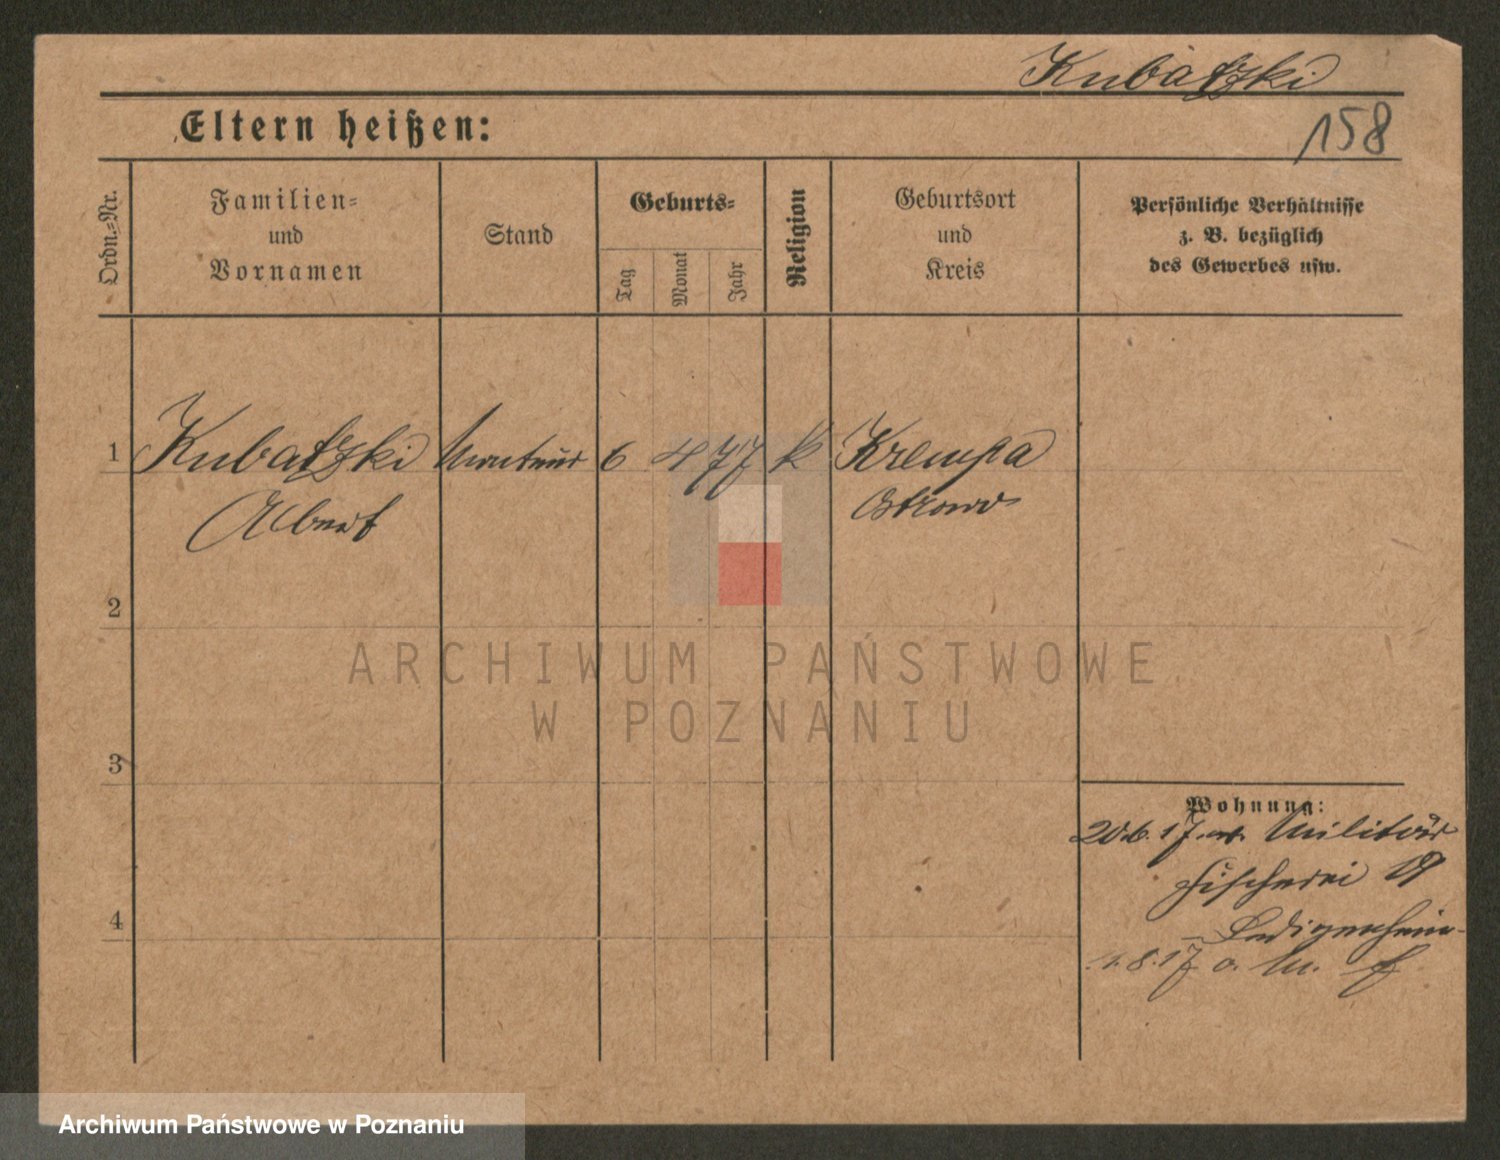 Kubatzki
158
Eltern heißen:
Ordn.=Nr.
Familien=
und
Vornamen
Stand
Geburts=
Tag
Monat
Jahr
Religion
Geburtsort
und
Kreis
Persönliche Verhältnisse
z. B. bezüglich
des Gewerbes usw.
1 Kubatzki Monteur 6 4 77 k Krempa
Albert Ostrowo
2
ARCHIWUM PAŃSTWOWE
W POZNANIU
3
Wohnung:
20.6.17. Militär
Fischerei 19
Ledigenheim
1.8.17 o.
4
Archiwum Państwowe w Poznaniu